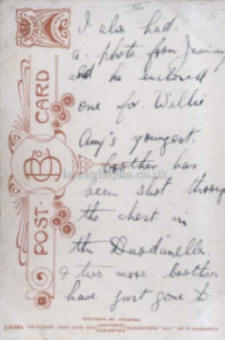 I also had
a photo from Jimmy
and he enclosed
one for Willie
Amy's youngest
brother has
been shot through
the chest in
the Dardanelles
& two more brothers
have just gone to
POST CARD